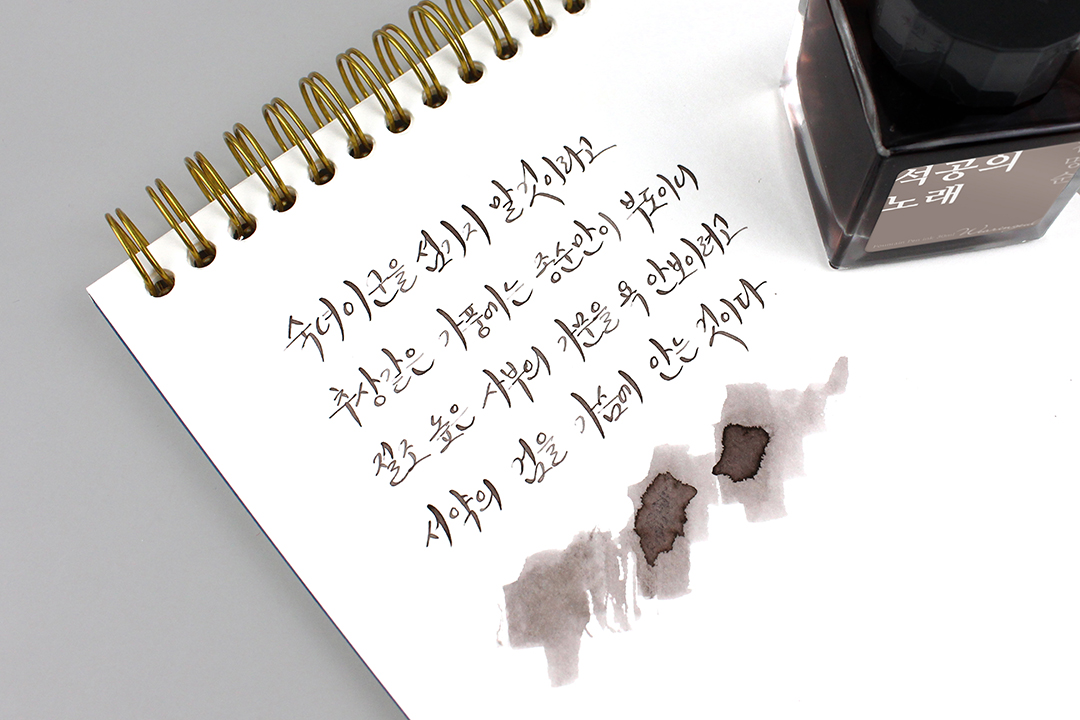 숙녀 이군을 섬기지 말 것이라고
추상같은 가풍에는 종순만이 부도이니
절조 높은 사부의 가문을 욕 안보이려고
서약의 검을 가슴에 안는 것이다
석공의
노래